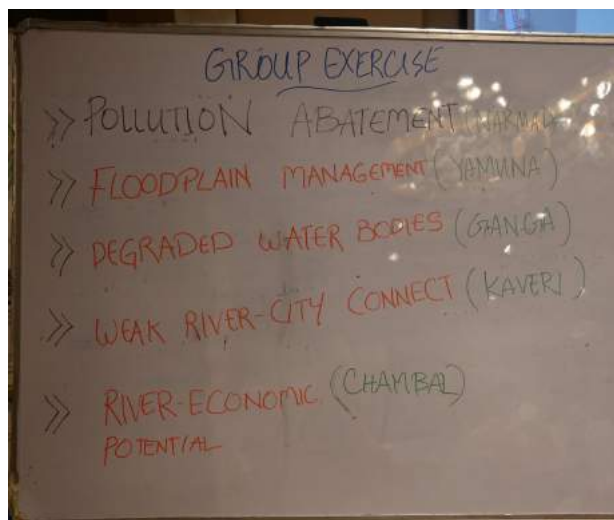 GROUP EXERCISE
>> POLLUTION ABATEMENT (NARMADA)
>> FLOODPLAIN MANAGEMENT (YAMUNA)
>> DEGRADED WATER BODIES (GANGA)
>> WEAK RIVER-CITY CONNECT (KAVERI)
>> RIVER-ECONOMIC (CHAMBAL)
POTENTIAL